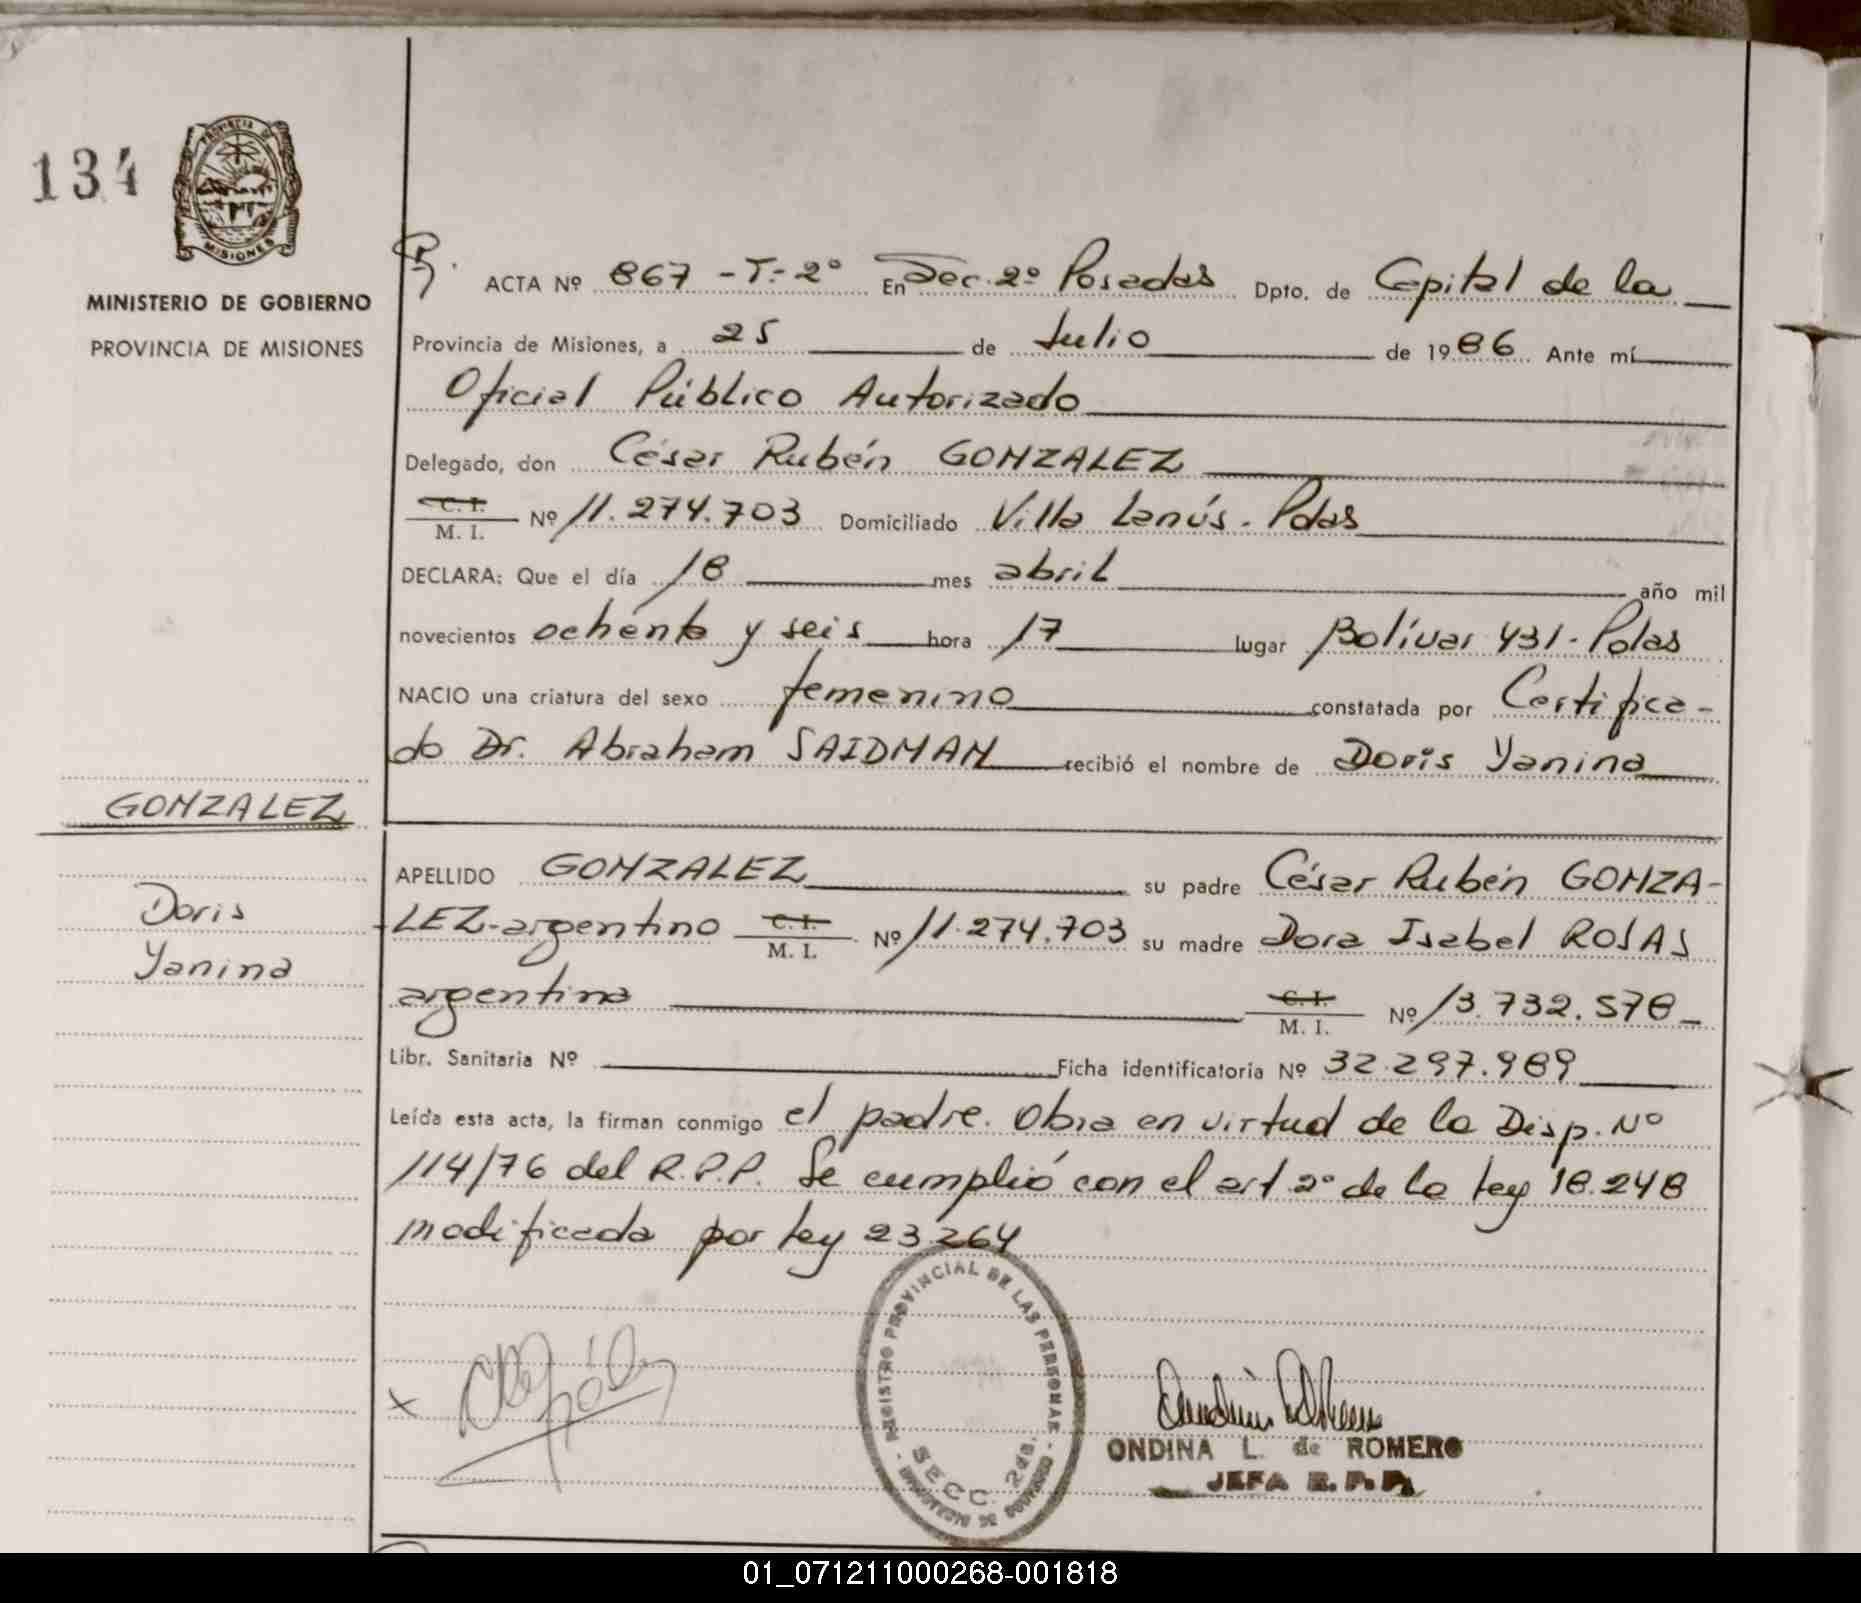 134
PROVINCIA DE
MISIONES
MINISTERIO DE GOBIERNO
PROVINCIA DE MISIONES
ACTA Nº 867 - T.- 2º En Sec. 2º Posadas Dpto. de Capital de la
Provincia de Misiones, a 25 de Julio de 1986 Ante mí
Oficial Público Autorizado
Delegado, don César Rubén GONZALEZ
C. I.
M. I. Nº 11.274.703 Domiciliado Villa Lanús - Pdas
DECLARA: Que el día 18 mes abril año mil
novecientos ochenta y seis hora 17 lugar Bolívar 431 - Pdas
NACIO una criatura del sexo femenino constatada por Certifica-
do Dr. Abraham SAIDMAN recibió el nombre de Doris Yanina
GONZALEZ
Doris
Yanina
APELLIDO GONZALEZ su padre César Rubén GONZA-
LEZ - argentino C. I. M. I. Nº 11.274.703 su madre Dora Isabel ROSAS
argentina C. I. M. I. Nº 13.732.578
Libr. Sanitaria Nº Ficha identificatoria Nº 32.297.989
Leída esta acta, la firman conmigo el padre. Obra en virtud de la Disp. Nº
114/76 del R.P.P. Se cumplió con el art 2º de la Ley 18.248
modificada por Ley 23264
REGISTRO PROVINCIAL DE LAS PERSONAS
SECC. 2da.
ONDINA L. de ROMERO
JEFA R. P. P.
01_071211000268-001818